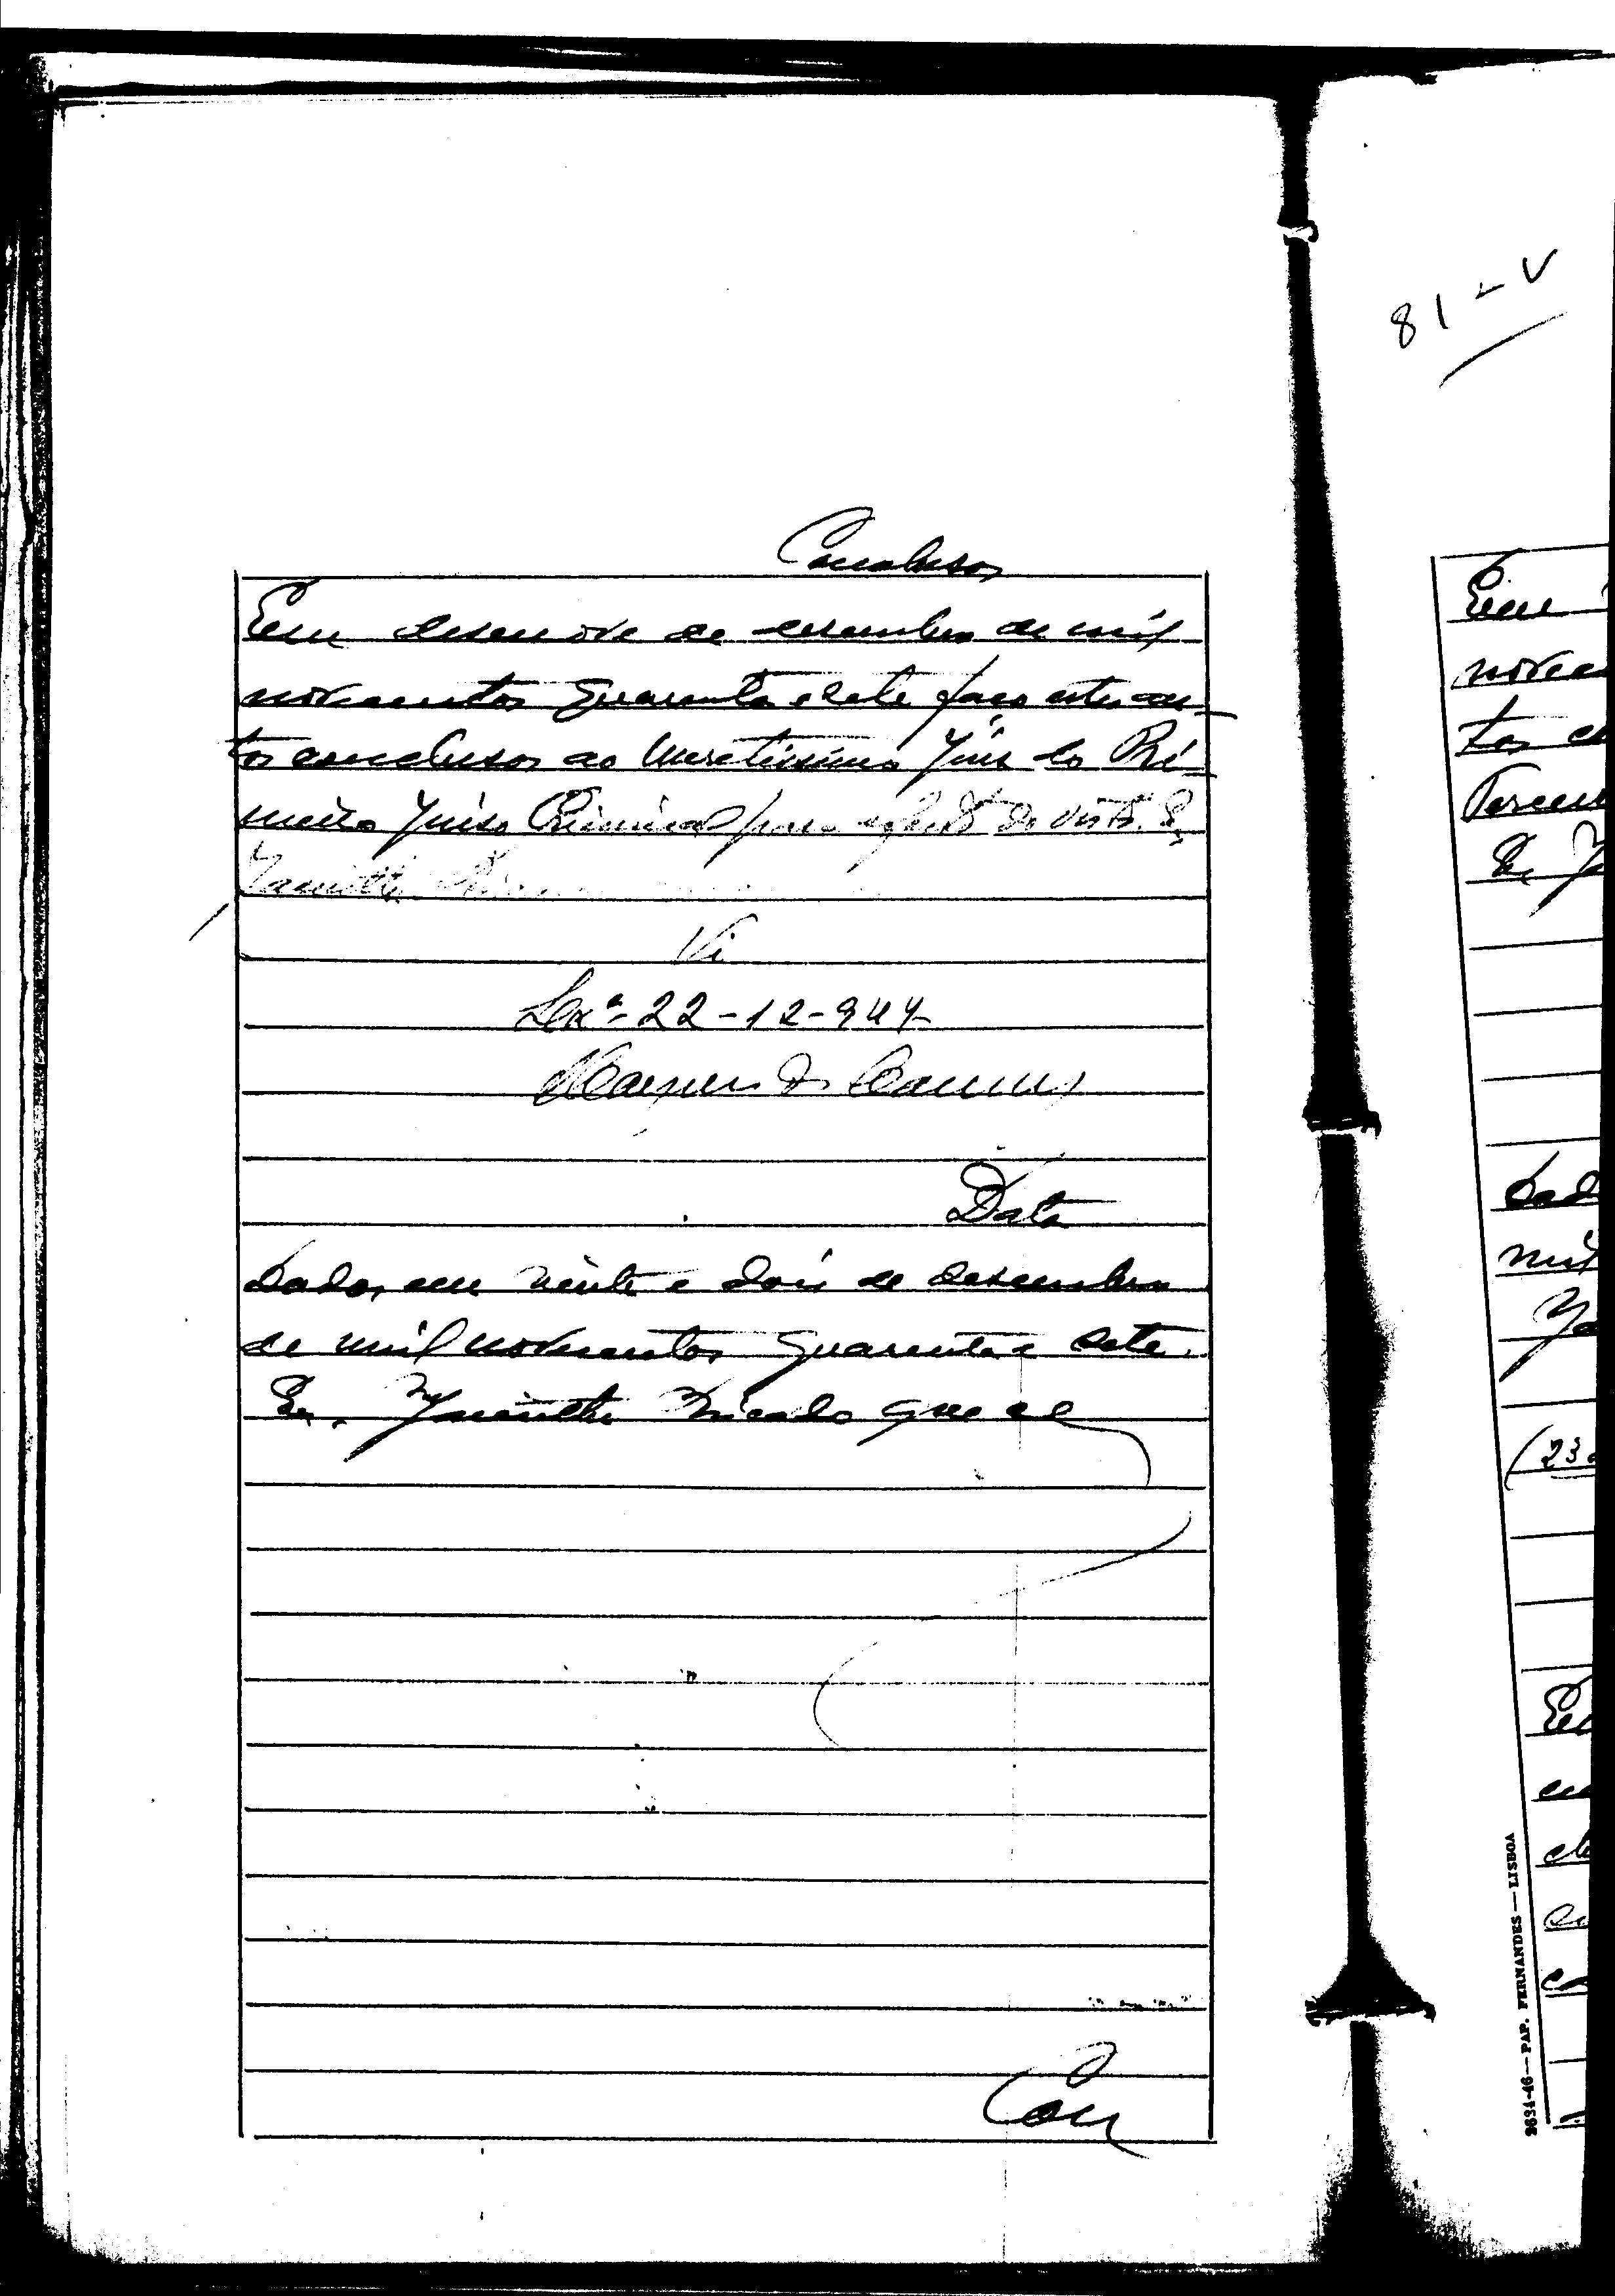 Conclusos
Em desenove de desembro de mil
novecentos quarenta e sete faço estes au-
tos conclusos ao Meretissimo Juis do Pri-
meiro Juiso Criminal para efeito do visto. E,
Jacintho
Vi
Lxª 22-12-947
Data
Dados em vinte e dois de desembro
de mil novecentos quarenta e sete.
E, Jacintho que e
Con
81-V
Em
novece
tos c
Tercei
E, Ja
Dad
mil
Ja
(23
9634-46—PAP. FERNANDES—LISBOA